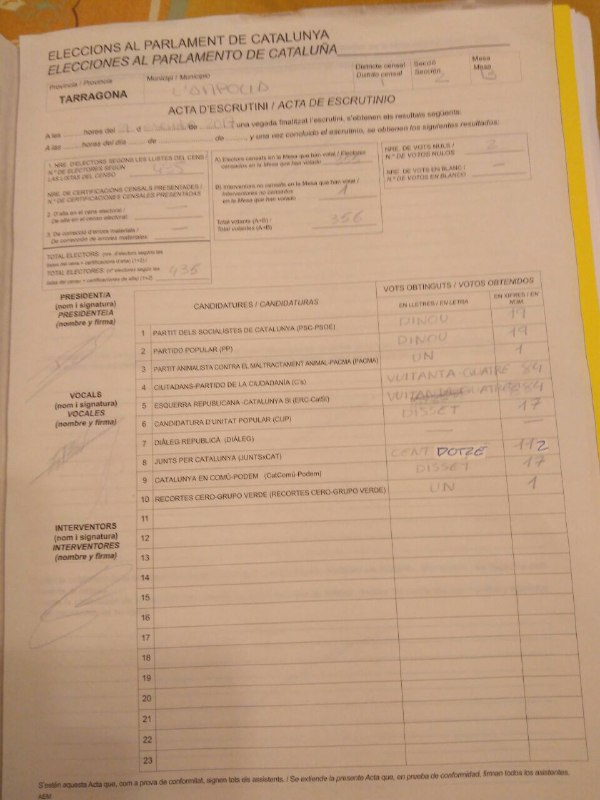 ELECCIONS AL PARLAMENT DE CATALUNYA
ELECCIONES AL PARLAMENTO DE CATALUÑA
Província / Provincia
TARRAGONA
Municipi / Municipio
L'AMPOLLA
Districte censal
Distrito censal
1
Secció
Sección
2
Mesa
Mesa
B
ACTA D'ESCRUTINI / ACTA DE ESCRUTINIO
A les hores del 21 d de 2017 una vegada finalitzat l'escrutini, s'obtenen els resultats següents:
A las hores del día de de y una vez concluido el escrutinio, se obtienen los siguientes resultados:
1. NRE. D'ELECTORS SEGONS LES LLISTES DEL CENS /
N.º DE ELECTORES SEGÚN
LAS LISTAS DEL CENSO
435
NRE. DE CERTIFICACIONS CENSALS PRESENTADES /
N.º DE CERTIFICACIONES CENSALES PRESENTADAS
2. D'alta en el cens electoral /
De alta en el censo electoral
—
3. De correcció d'errors materials /
De corrección de errores materiales
—
TOTAL ELECTORS:
TOTAL ELECTORES:
435
A) Electors censats en la Mesa que han votat / Electores
censados en la Mesa que han votado
355
B) Interventors no censats en la Mesa que han votat /
Interventores no censados
en la Mesa que han votado
1
Total votants (A+B) /
Total votantes (A+B)
356
NRE. DE VOTS NULS /
N.º DE VOTOS NULOS
2
NRE. DE VOTS EN BLANC /
N.º DE VOTOS EN BLANCO
—
PRESIDENT/A
(nom i signatura)
PRESIDENTE/A
(nombre y firma)
VOCALS
(nom i signatura)
VOCALES
(nombre y firma)
INTERVENTORS
(nom i signatura)
INTERVENTORES
(nombre y firma)
CANDIDATURES / CANDIDATURAS
VOTS OBTINGUTS / VOTOS OBTENIDOS
EN LLETRES / EN LETRA
EN XIFRES / EN NÚM.
1 PARTIT DELS SOCIALISTES DE CATALUNYA (PSC-PSOE) DINOU 19
2 PARTIDO POPULAR (PP) DINOU 19
3 PARTIT ANIMALISTA CONTRA EL MALTRACTAMENT ANIMAL-PACMA (PACMA) UN 1
4 CIUTADANS-PARTIDO DE LA CIUDADANÍA (C's) VUITANTA-QUATRE 84
5 ESQUERRA REPUBLICANA-CATALUNYA SÍ (ERC-CatSí) 84
6 CANDIDATURA D'UNITAT POPULAR (CUP) DISSET 17
7 DIÀLEG REPUBLICÀ (DIÀLEG) — —
8 JUNTS PER CATALUNYA (JUNTSxCAT) CENT DOTZE 112
9 CATALUNYA EN COMÚ-PODEM (CatComú-Podem) DISSET 17
10 RECORTES CERO-GRUPO VERDE (RECORTES CERO-GRUPO VERDE) UN 1
11
12
13
14
15
16
17
18
19
20
21
22
23
S'estén aquesta Acta que, com a prova de conformitat, signen tots els assistents. / Se extiende la presente Acta que, en prueba de conformidad, firman todos los asistentes.
AEM